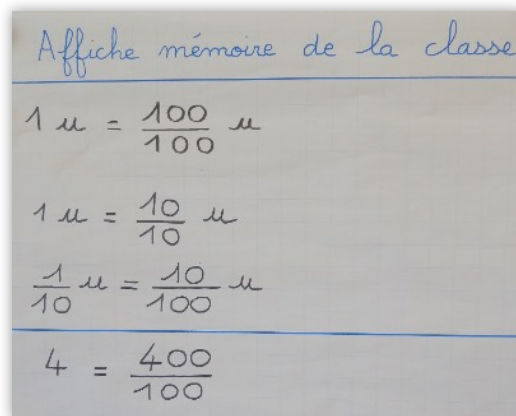 Affiche mémoire de la classe
1 u = 100/100 u
1 u = 10/10 u
1/10 u = 10/100 u
4 = 400/100